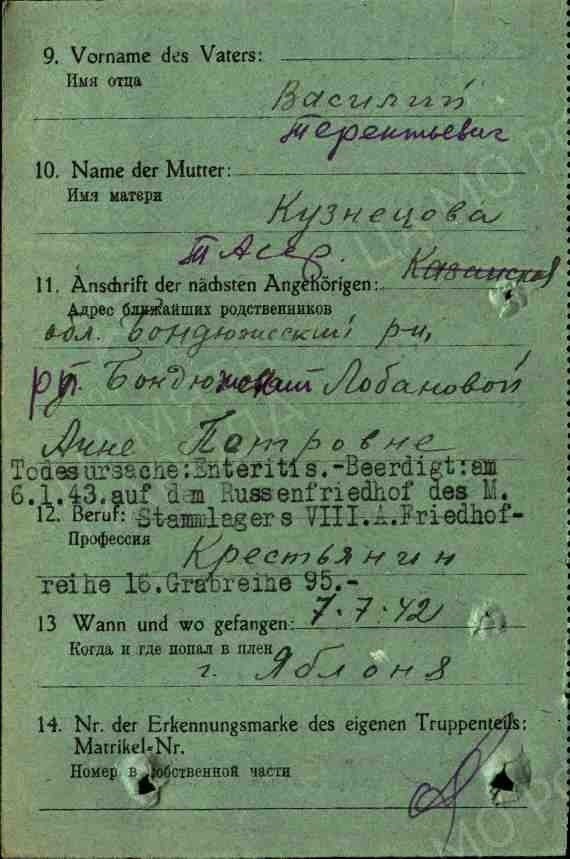 9. Vorname des Vaters:
Имя отца
Василий
Терентьевич
10. Name der Mutter:
Имя матери
Кузнецова
ТАССР.
Казанская
11. Anschrift der nächsten Angehörigen:
Адрес ближайших родственников
обл. Бондюжский р-н,
рп. Бондюжский Лобановой
Анне Петровне
Todesursache:Enteritis.-Beerdigt:am
6.1.43.auf dem Russenfriedhof des M.
12. Beruf: Stammlagers VIII.A.Friedhof-
Профессия
Крестьянин
reihe 16.Grabreihe 95.-
13 Wann und wo gefangen: 7.7.42
Когда и где попал в плен
г. Яблоня
14. Nr. der Erkennungsmarke des eigenen Truppenteils:
Matrikel-Nr.
Номер в собственной части